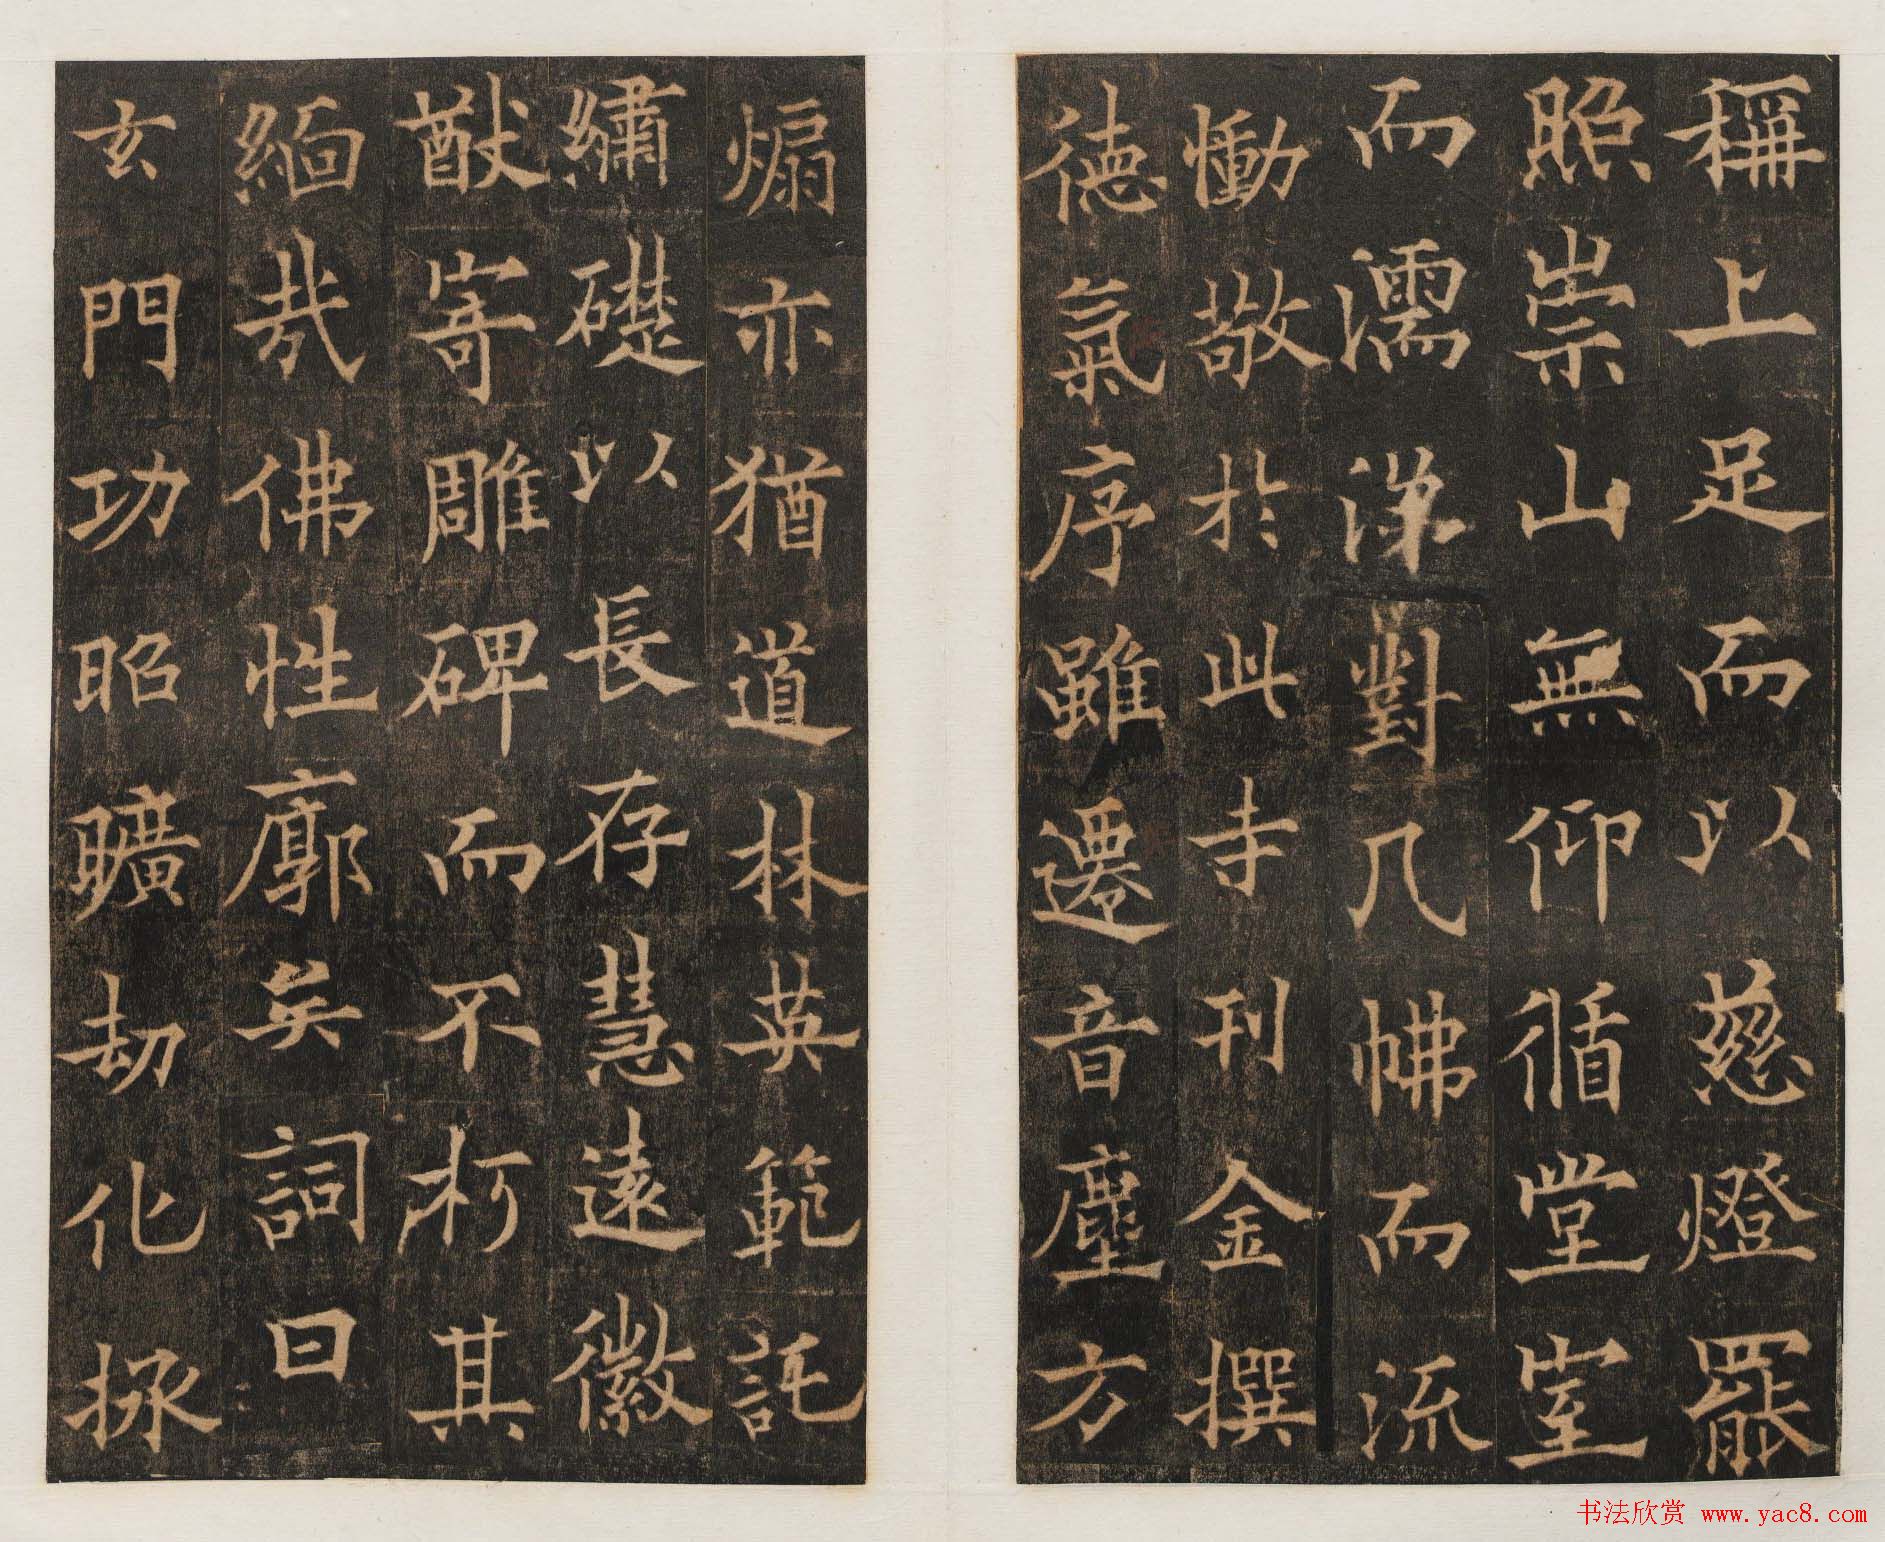 稱上足而以慈燈罷
照崇山無仰循堂室
而濡涕對几怫而流
慟敬於此寺刊金撰
德氣序雖遷音塵方
煽亦猶道林英範託
繡礎以長存慧遠徽
猷寄雕碑而不朽其
緬哉佛性廓矣詞曰
玄門功昭曠劫化拯
书法欣赏 www.yac8.com